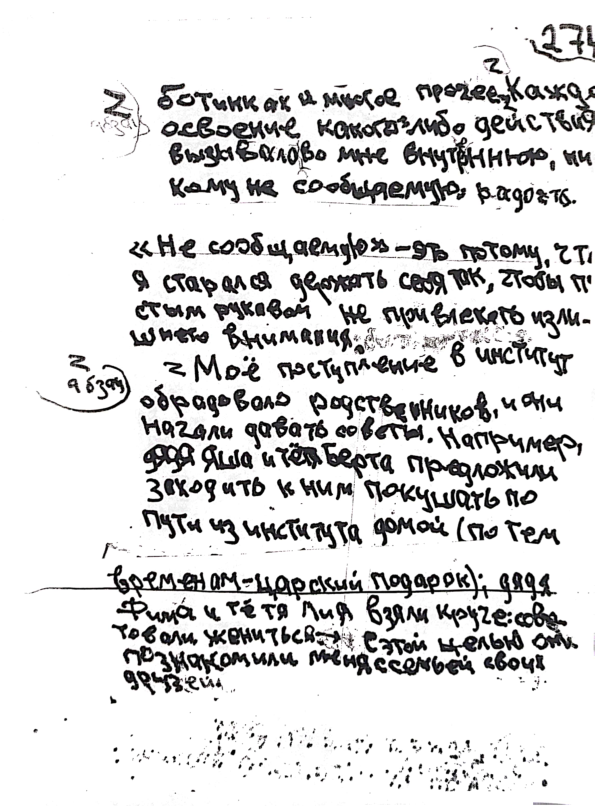 274
Z
Z абзац
ботинках и многое прочее. Кажд
освоение какого-либо действия
вызывало во мне внутреннюю, ни
кому не сообщаемую, радость.
«Не сообщаемую» – это потому, чт
я старался держать себя так, чтобы п
стым рукавом не привлекать изли-
шнего внимания.
Z абзац
Z Моё поступление в институт
обрадовало родственников, и они
начали давать советы. Например,
дядя Яша и тётя Берта предложили
заходить к ним покушать по
пути из института домой (по тем
временам – царский подарок); дядя
Фима и тётя Лия взяли круче: сове-
товали жениться → с этой целью они
познакомили меня с семьёй своих
друзей.